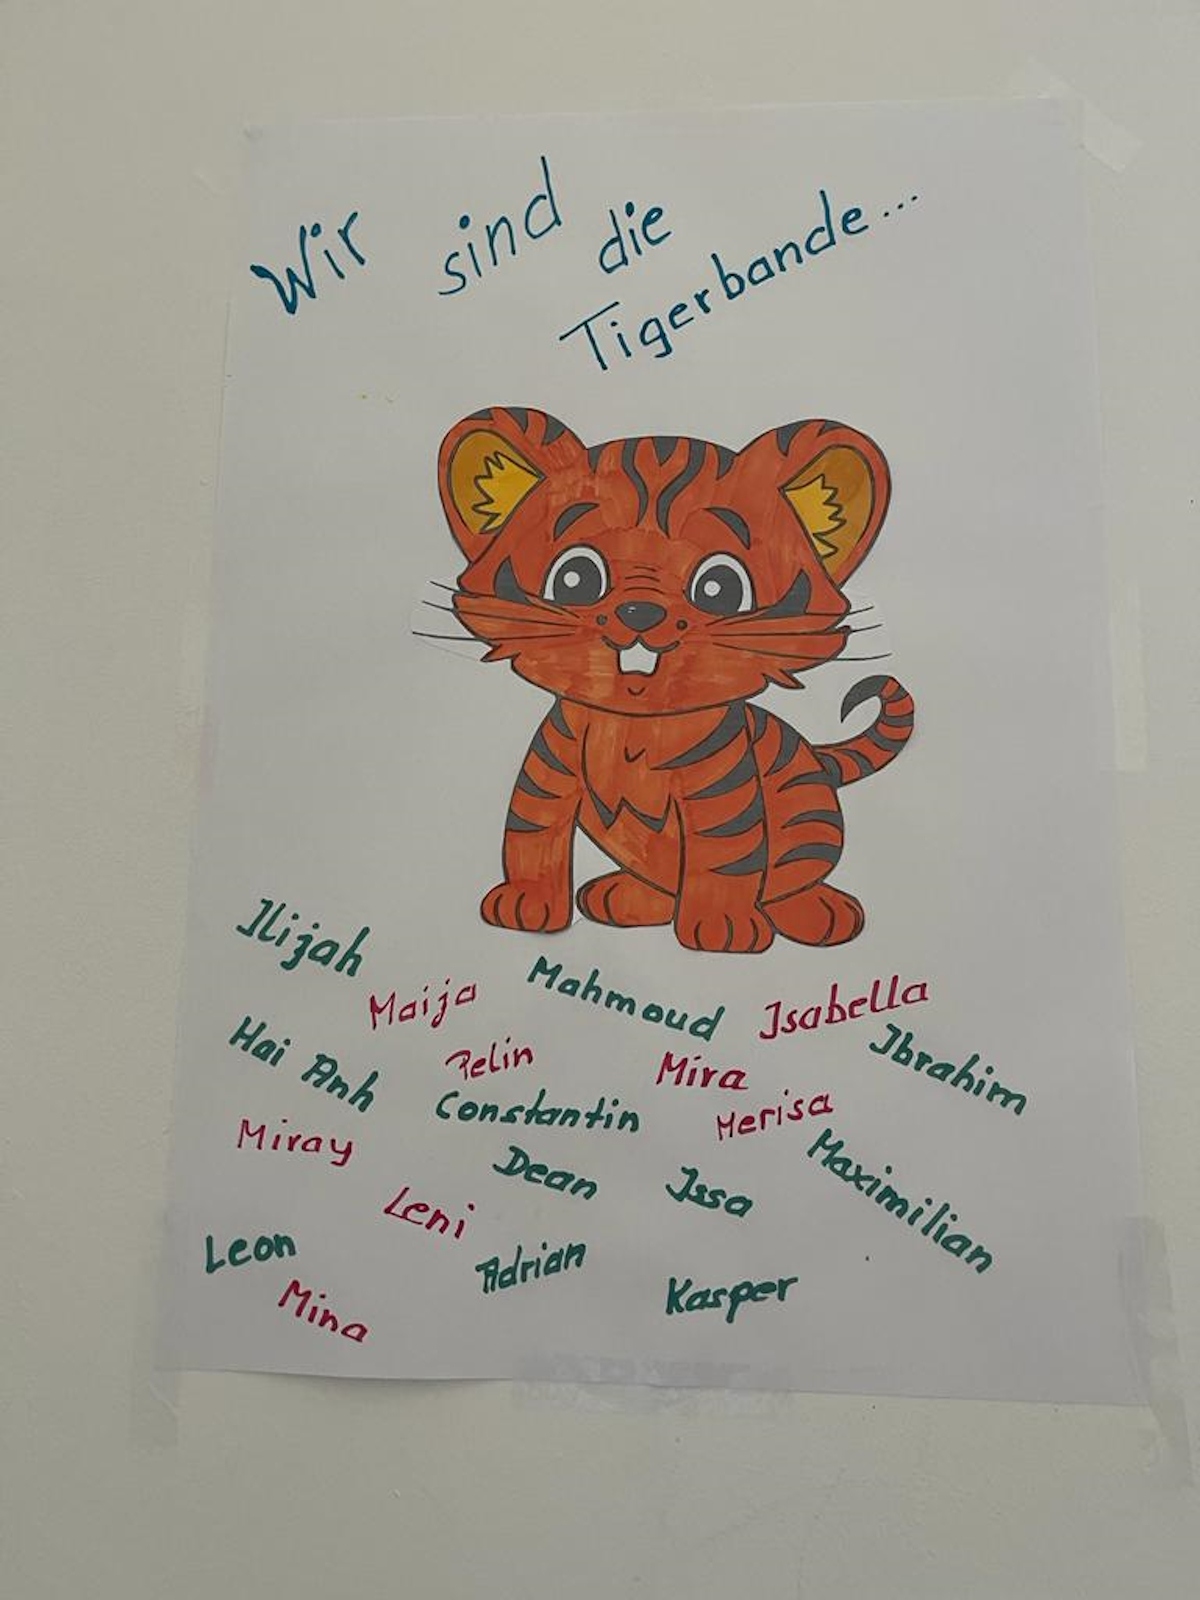 Wir sind die
Tigerbande...
Ilijah
Maija
Mahmoud
Isabella
Ibrahim
Hai Anh
Pelin
Mira
Constantin
Merisa
Miray
Dean
Issa
Maximilian
Leni
Leon
Adrian
Kasper
Mina